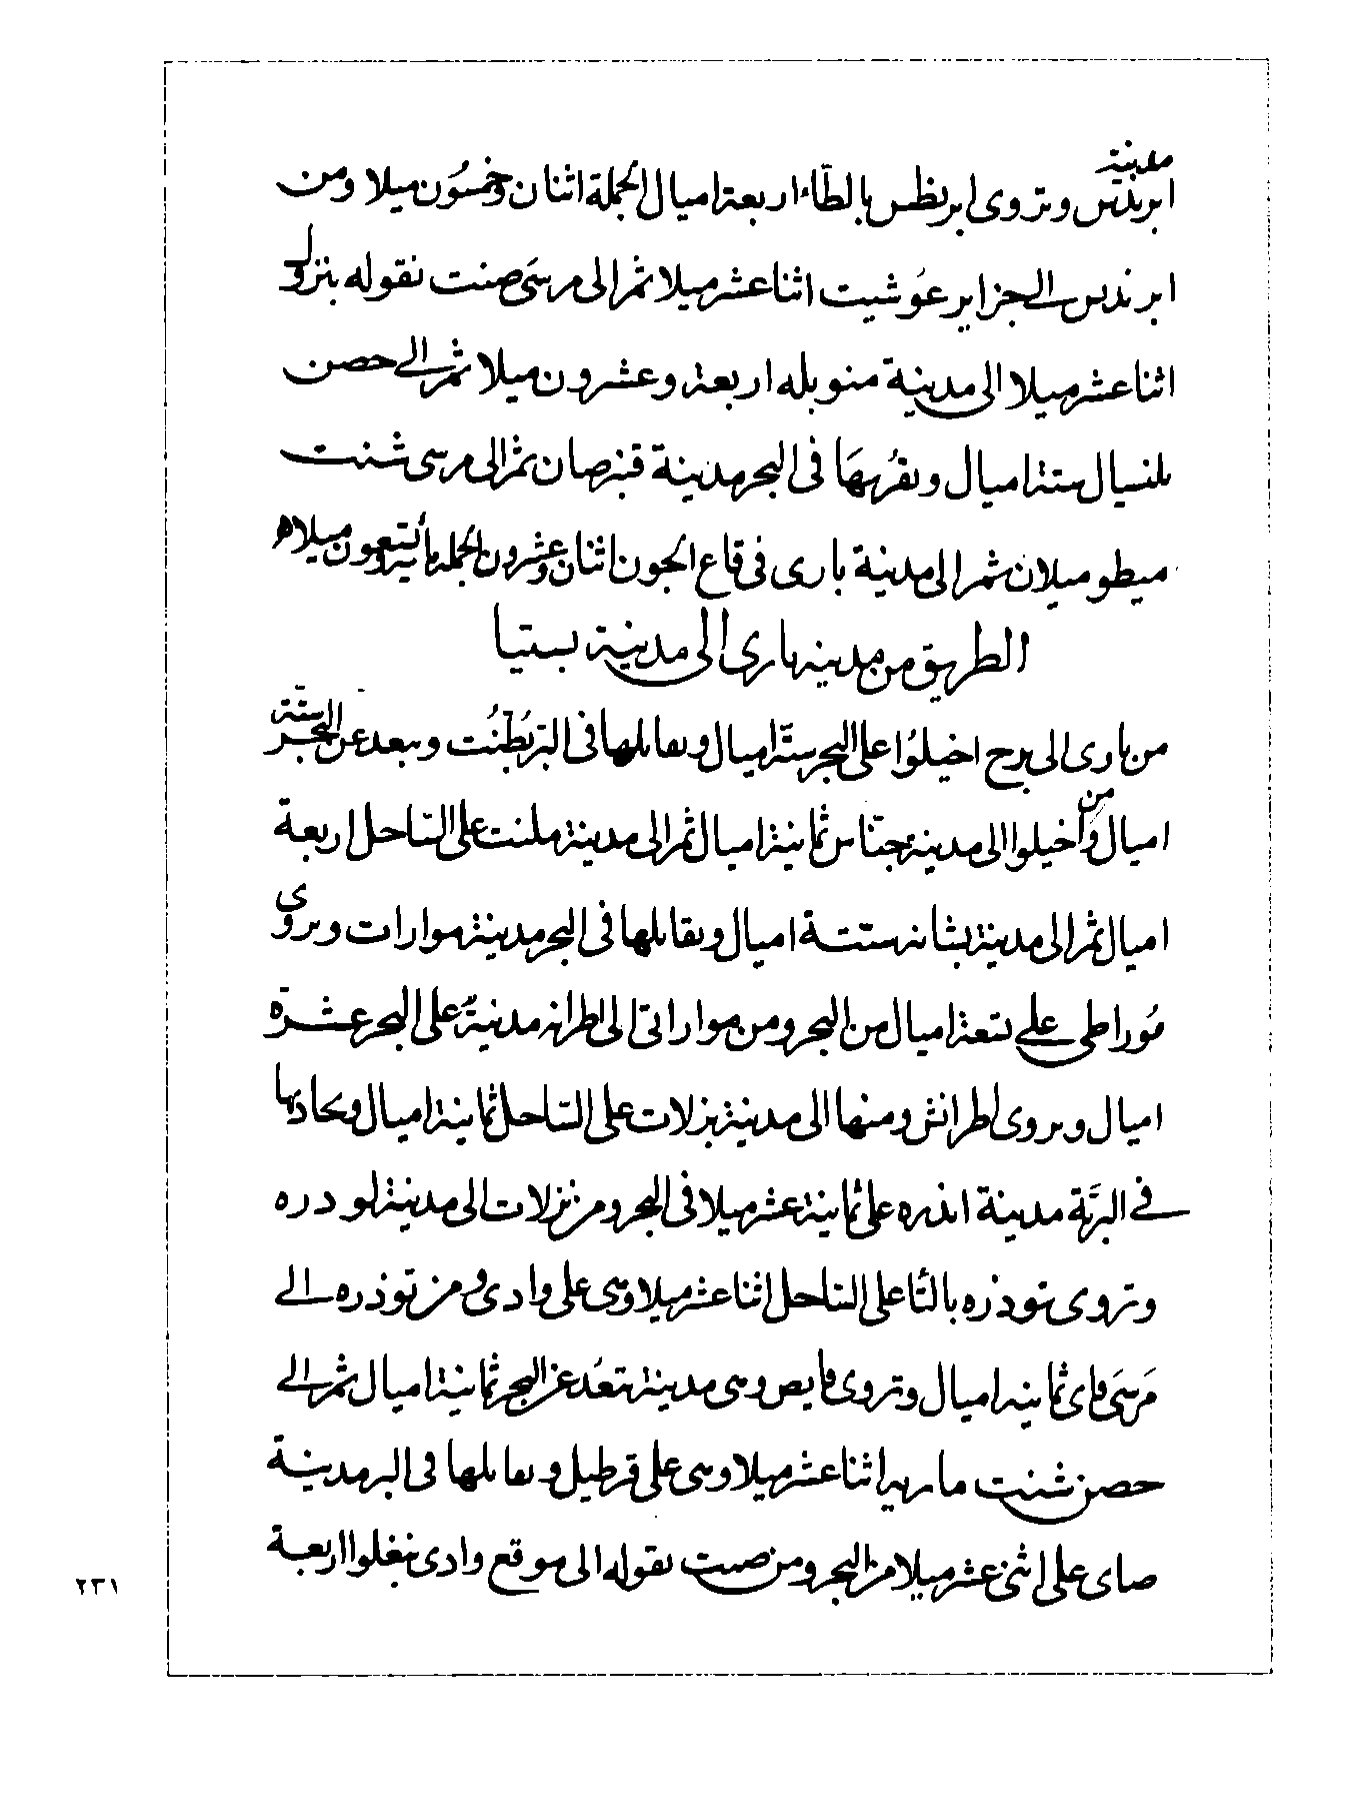 مدينة
ابرندس وتروى ابرنظس بالطاء اربعة اميال الجملة اثنان وخمسون ميلا ومن
ابرندس الى جزاير عوشيت اثنا عشر ميلا ثم الى مرسى صنت نقوله بنزلو
اثنا عشر ميلا الى مدينة منوبله اربعة وعشرون ميلا ثم الى حصن
بلنسيال ستة اميال وبقربها فى البحر مدينة قنبرصان ثم الى مرسى شنت
ميطو ميلان ثم الى مدينة بارى فى قاع الجون اثنان وعشرون الجملة ميلا
الطريق من مدينة بارى الى مدينة بستيا
من بارى الى برج اخيلوا على البحر ستة اميال ويقابلها فى البر بطنت ويبعد عن البحر ستة
اميال ومن اخيلوا الى مدينة جناس ثمانية اميال ثم الى مدينة ملنت على الساحل اربعة
اميال ثم الى مدينة بشانه ستة اميال ويقابلها فى البحر مدينة موارات ويروى
موراطى على تسعة اميال من البحر ومن موارانى الى اطرانه مدينة على البحر عشرة
اميال ويروى اطرانش ومنها الى مدينة بزلات على الساحل ثمانية اميال ويحاذيها
فى البرية مدينة اندره على ثمانية عشر ميلا فى البحر ومن بزلات الى مدينة لودره
وتروى توذره بالتا على الساحل اثنا عشر ميلا وهى على وادى ومن توذره الى
مرسى فاى ثمانيه اميال وتروى فايص وهى مدينة تبعد عن البحر ثمانية اميال ثم الى
حصن شنت ماريه اثنا عشر ميلا وهى على قرطيل ويقابلها فى البر مدينة
صاى على اثنى عشر ميلا من البحر ومن صنت نقوله الى موقع وادى نبغلوا اربعة
٢٣١